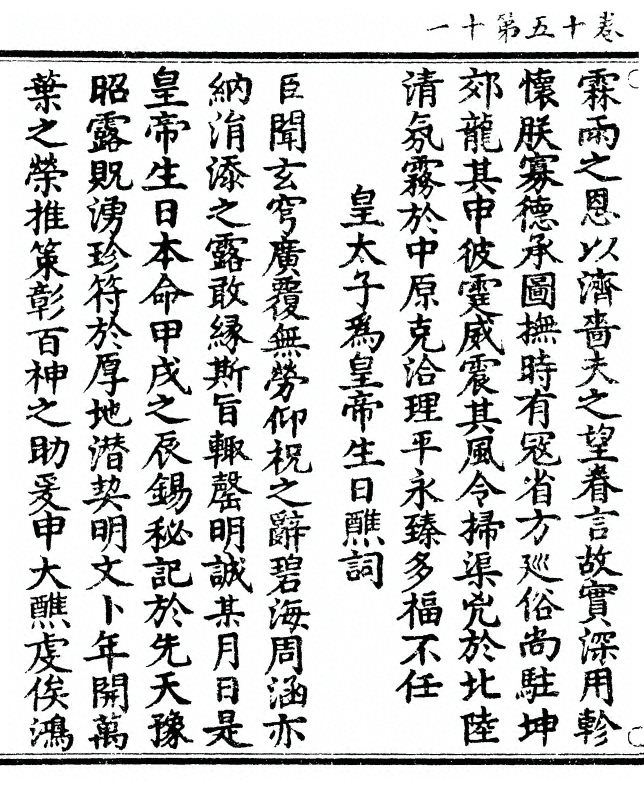 卷十五第十一
霖雨之恩以濟嗇夫之望眷言故實深用軫
懷朕寡德承圖撫時有冦省方廵俗尚駐坤
郊龍其申彼霊威震其風令掃渠兇於北陸
清氛霧於中原克洽理平永臻多福不任
皇太子爲皇帝生日醮詞
臣聞玄穹廣覆無勞仰祝之辭碧海周涵亦
納涓添之露敢縁斯旨輙罄明誠某月日是
皇帝生日本命甲戌之辰錫秘記於先天豫
昭露貺湧珍符於厚地潜契明文卜年開萬
葉之榮推策彰百神之助爰申大醮虔俟鴻